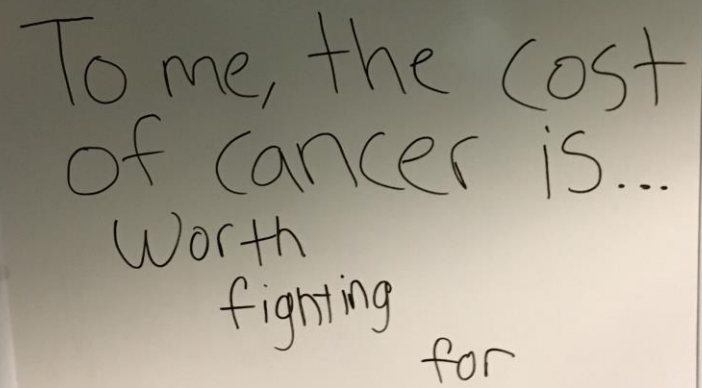 To me, the cost
of cancer is...
Worth
fighting
for